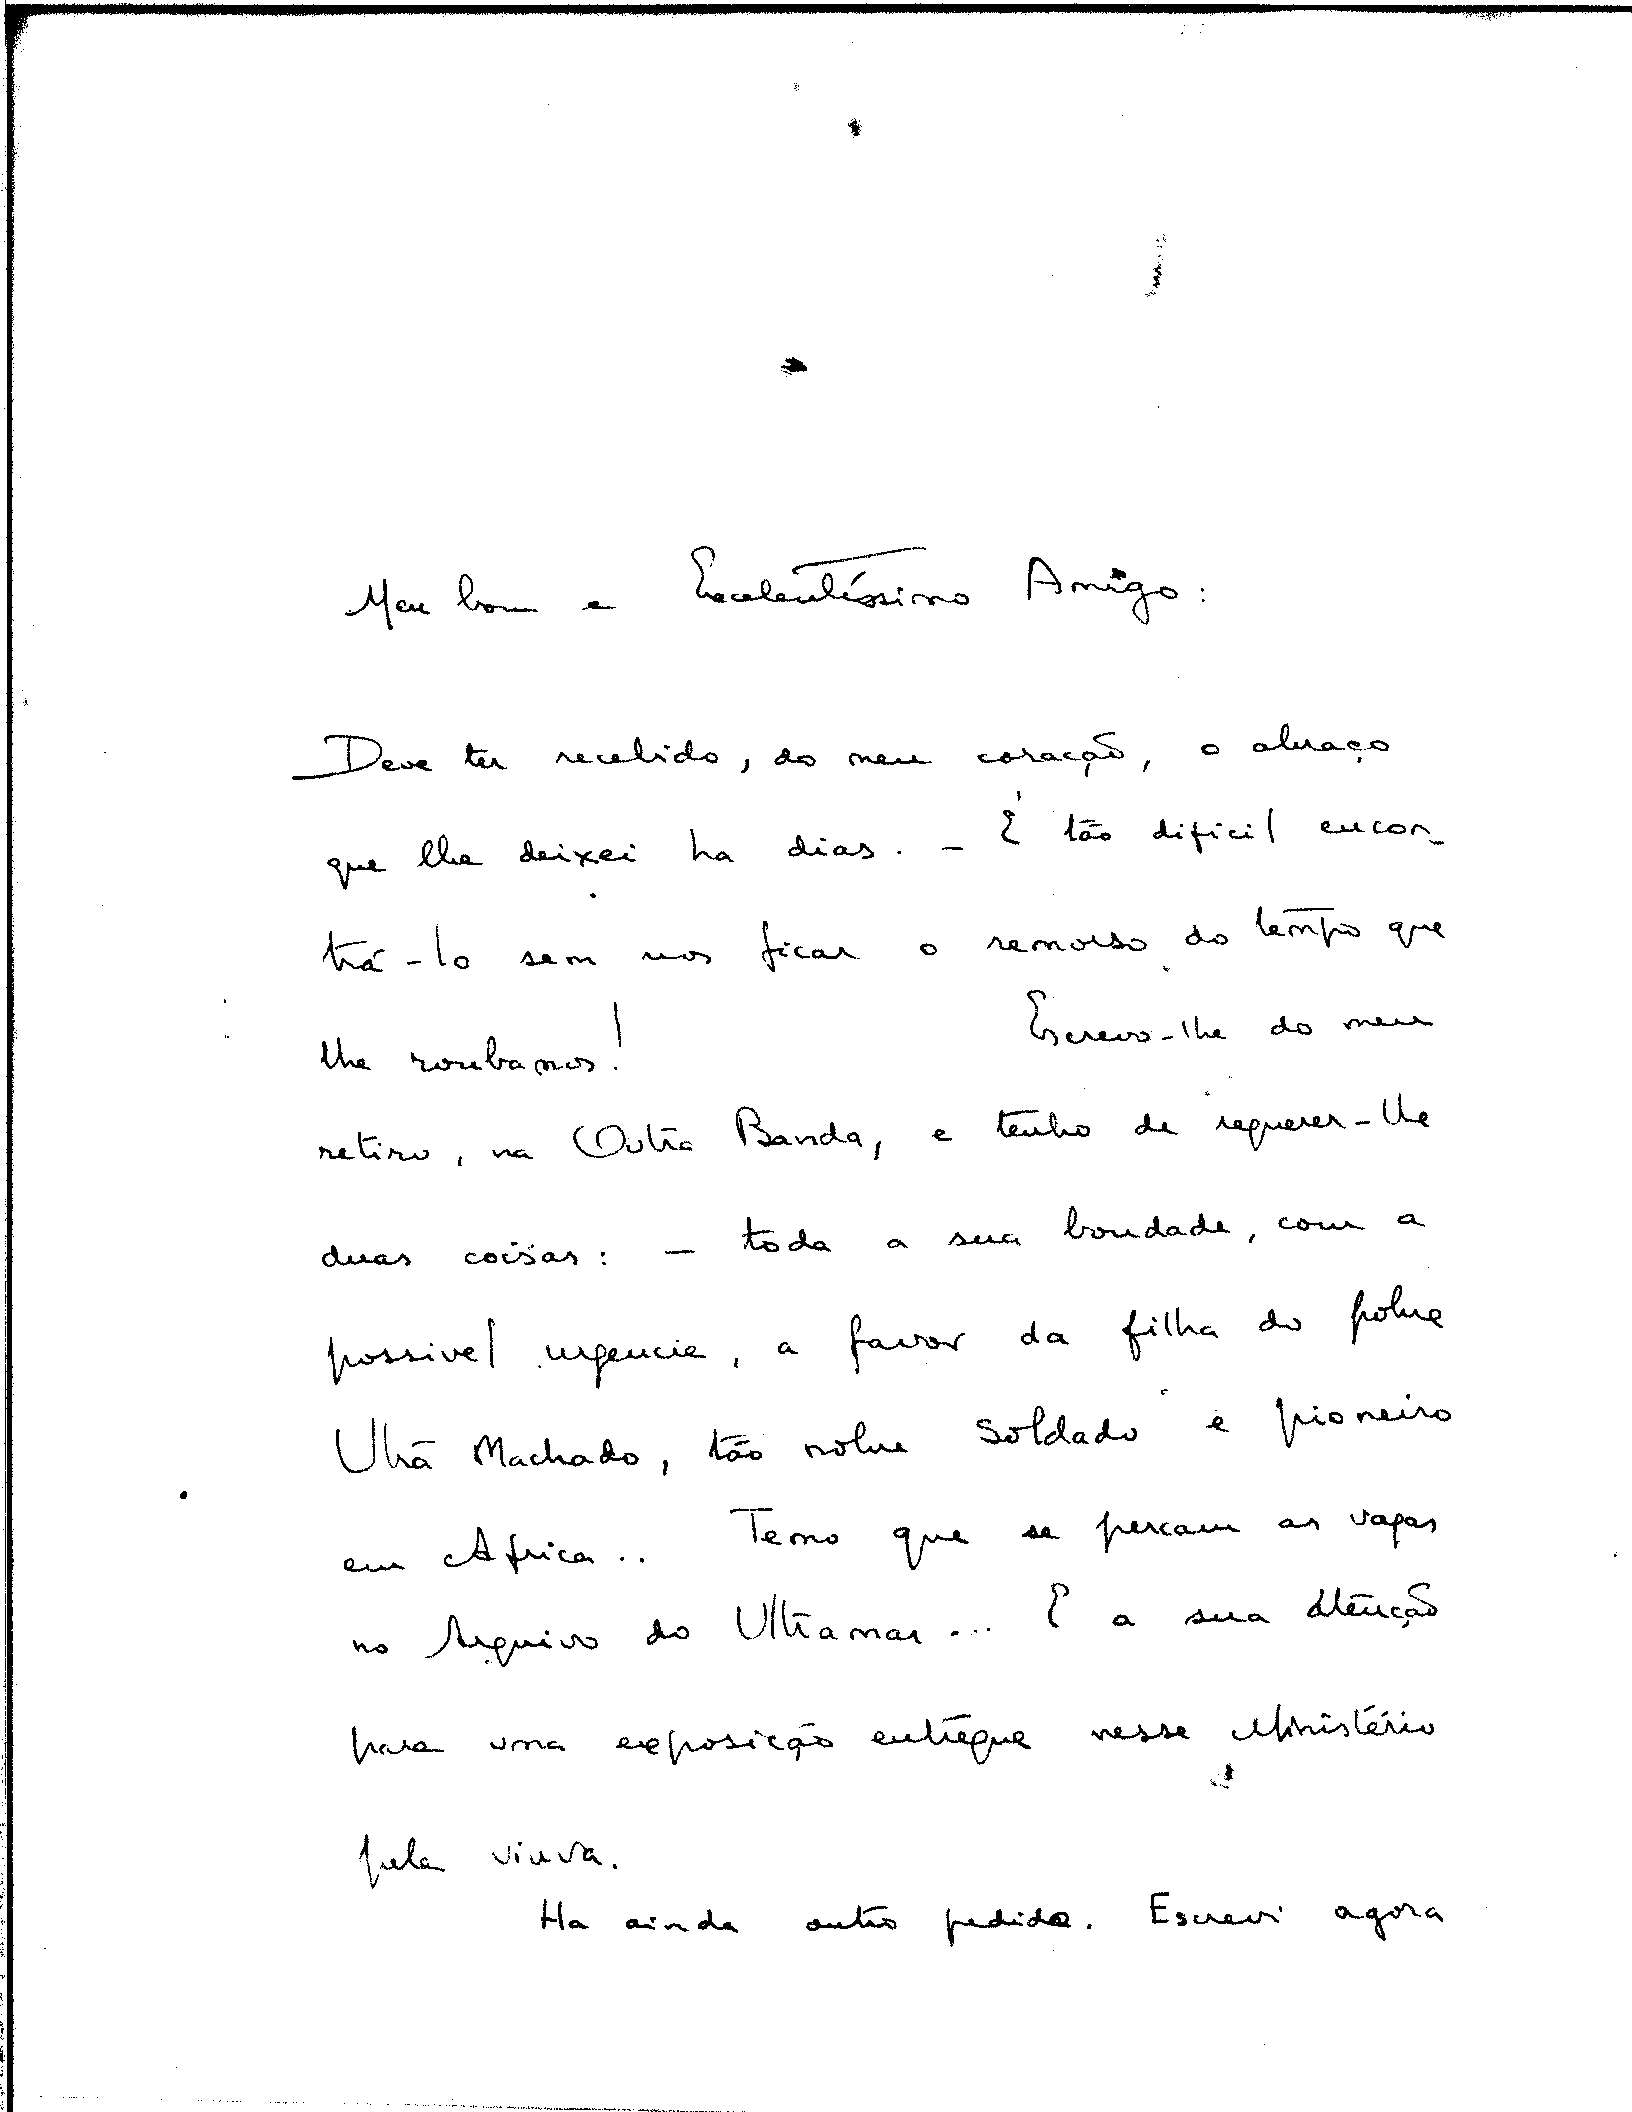 Meu bom e Excelentíssimo Amigo:
Deve ter recebido, do meu coração, o abraço
que lhe deixei ha dias. - É tão dificil encon-
trá-lo sem nos ficar o remorso do tempo que
lhe roubamos! Escrevo-lhe do meu
retiro, na Outra Banda, e tenho de requerer-lhe
duas coisas: - toda a sua bondade, com a
possivel urgencia, a favor da filha do pobre
Ultrá Machado, tão nobre soldado e pioneiro
em Africa.. Temo que se percam as vagas
no Arquivo do Ultramar... E a sua atenção
para uma exposição entregue nesse Ministério
pela viuva.
Ha ainda outro pedido. Escrevi agora